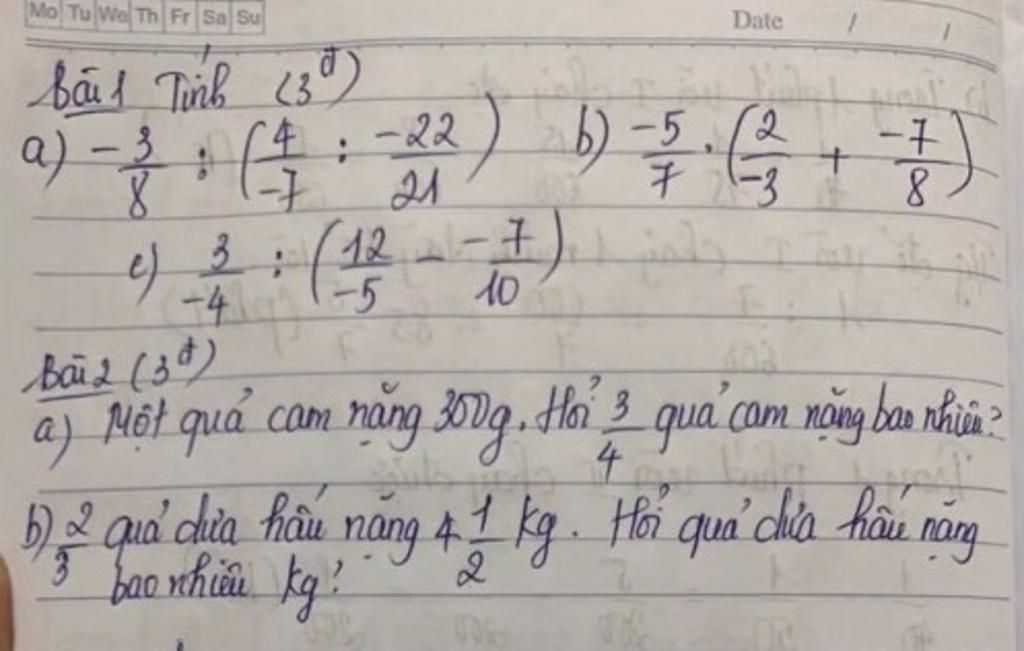 Mo Tu We Th Fr Sa Su Date / /
Bài 1 Tính (3đ)
a) -3/8 : (4/-7 : -22/21) b) -5/7 . (2/-3 + -7/8)
c) 3/-4 : (12/-5 - -7/10)
Bài 2 (3đ)
a) Một quả cam nặng 300g. Hỏi 3/4 quả cam nặng bao nhiêu?
b) 2/3 quả dưa hấu nặng 4 1/2 kg. Hỏi quả dưa hấu nặng
bao nhiêu kg?